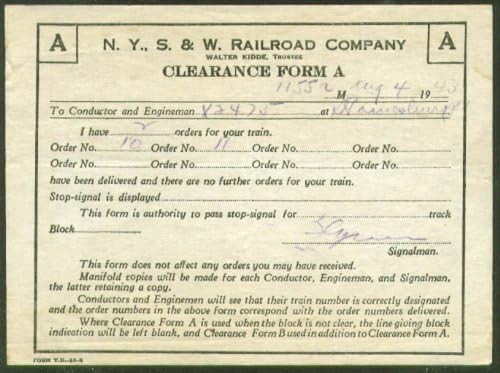 A N. Y., S. & W. RAILROAD COMPANY A
WALTER KIDDE, TRUSTEE
CLEARANCE FORM A
1155a M Aug 4 1943
To Conductor and Engineman X2475 at
I have 2 orders for your train.
Order No. 10 Order No. 11 Order No. Order No.
Order No. Order No. Order No. Order No.
have been delivered and there are no further orders for your train.
Stop-signal is displayed
This form is authority to pass stop-signal for track
Block
Signalman.
This form does not affect any orders you may have received.
Manifold copies will be made for each Conductor, Engineman, and Signalman,
the latter retaining a copy.
Conductors and Enginemen will see that their train number is correctly designated
and the order numbers in the above form correspond with the order numbers delivered.
Where Clearance Form A is used when the block is not clear, the line giving block
indication will be left blank, and Clearance Form B used in addition to Clearance Form A.
FORM T.D.-53-S